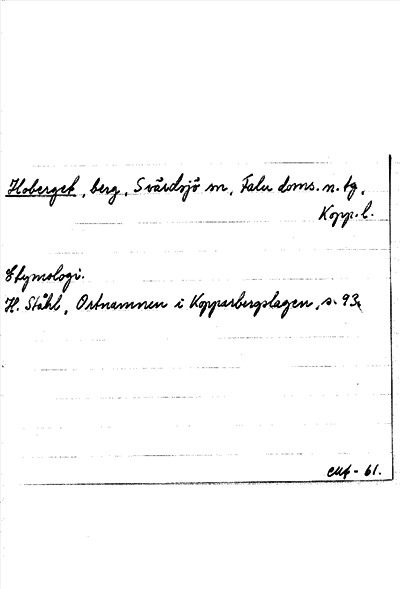 Hoberget, berg, Svärdsjö sn, Falu doms. n. tg,
Kopp. l.
Etymologi.
H. Ståhl, Ortnamnen i Kopparbergslagen, s. 93.
-61.